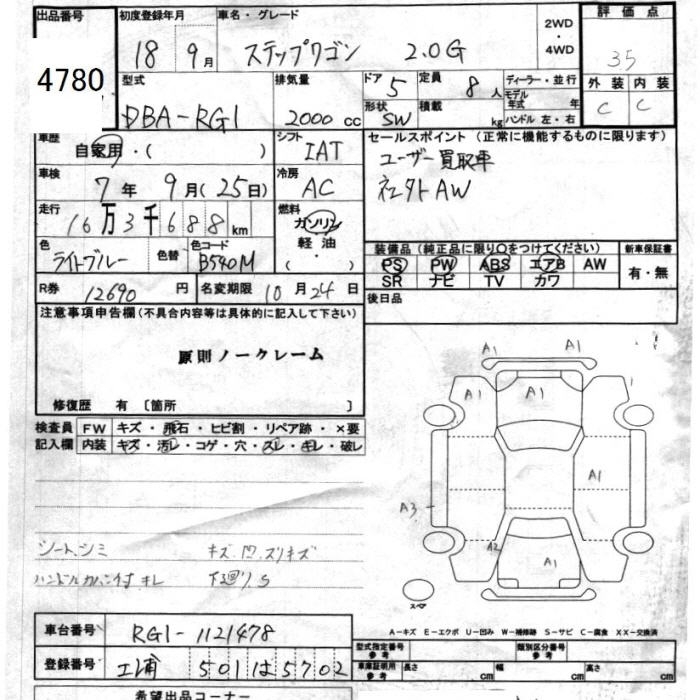 出品番号 初度登録年月 車名・グレード 2WD・4WD 評価点
4780 18 9月 ステップワゴン 2.0G 35
型式 排気量 ドア 5 定員 8人 ディーラー・並行 外装 内装
DBA-RG1 2000cc 形状 SW 積載 kg モデル年式 年 C C
ハンドル 左・右
車歴 自家用・( ) シフト IAT セールスポイント (正常に機能するものに限ります)
車検 7年 9月(25日) 冷房 AC ユーザー買取車
社外AW
走行 16万3千688km 燃料 ガソリン 軽油 ( ・ )
色 ライトブルー 色替 色コード B540M
装備品(純正品に限り○をつけてください) 新車保証書
PS PW ABS エアB AW 有・無
SR ナビ TV カワ
R券 12690円 名変期限 10月24日 後日品
注意事項申告欄(不具合内容等は具体的に記入して下さい)
原則ノークレーム
修復歴 有 〔箇所 〕
検査員記入欄 FW キズ・飛石・ヒビ割・リペア跡・×要
内装 キズ・汚レ・コゲ・穴・スレ・キレ・破レ
A1 A1
A1
A1
A3
A2 A1
スペア
シート、シミ キズ、凹、スリキズ
ハンドルカバー付 キレ 下廻り.S
A-キズ E-エクボ U-凹み W-補修跡 S-サビ C-腐食 XX-交換済
車台番号 RG1-1121478
型式指定番号 参考 類別区分番号 参考
登録番号 501 は 5702
車庫証明用 参考 長さ cm 幅 cm 高さ cm
希望出品コーナー